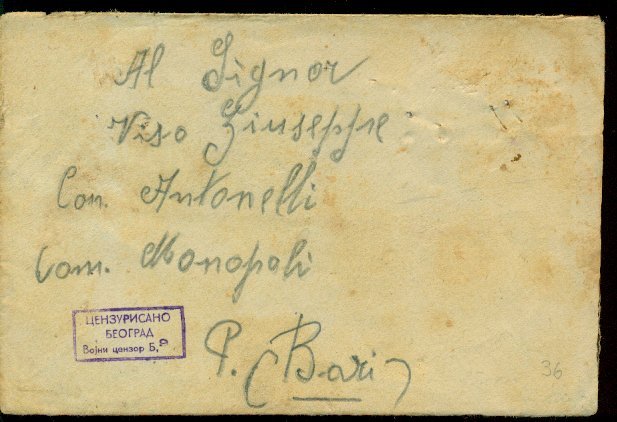 Al Signor
Viso Giuseppe
Con. Antonelli
Com. Monopoli
P. (Bari)
ЦЕНЗУРИСАНО
БЕОГРАД
Војни цензор Б,9
36